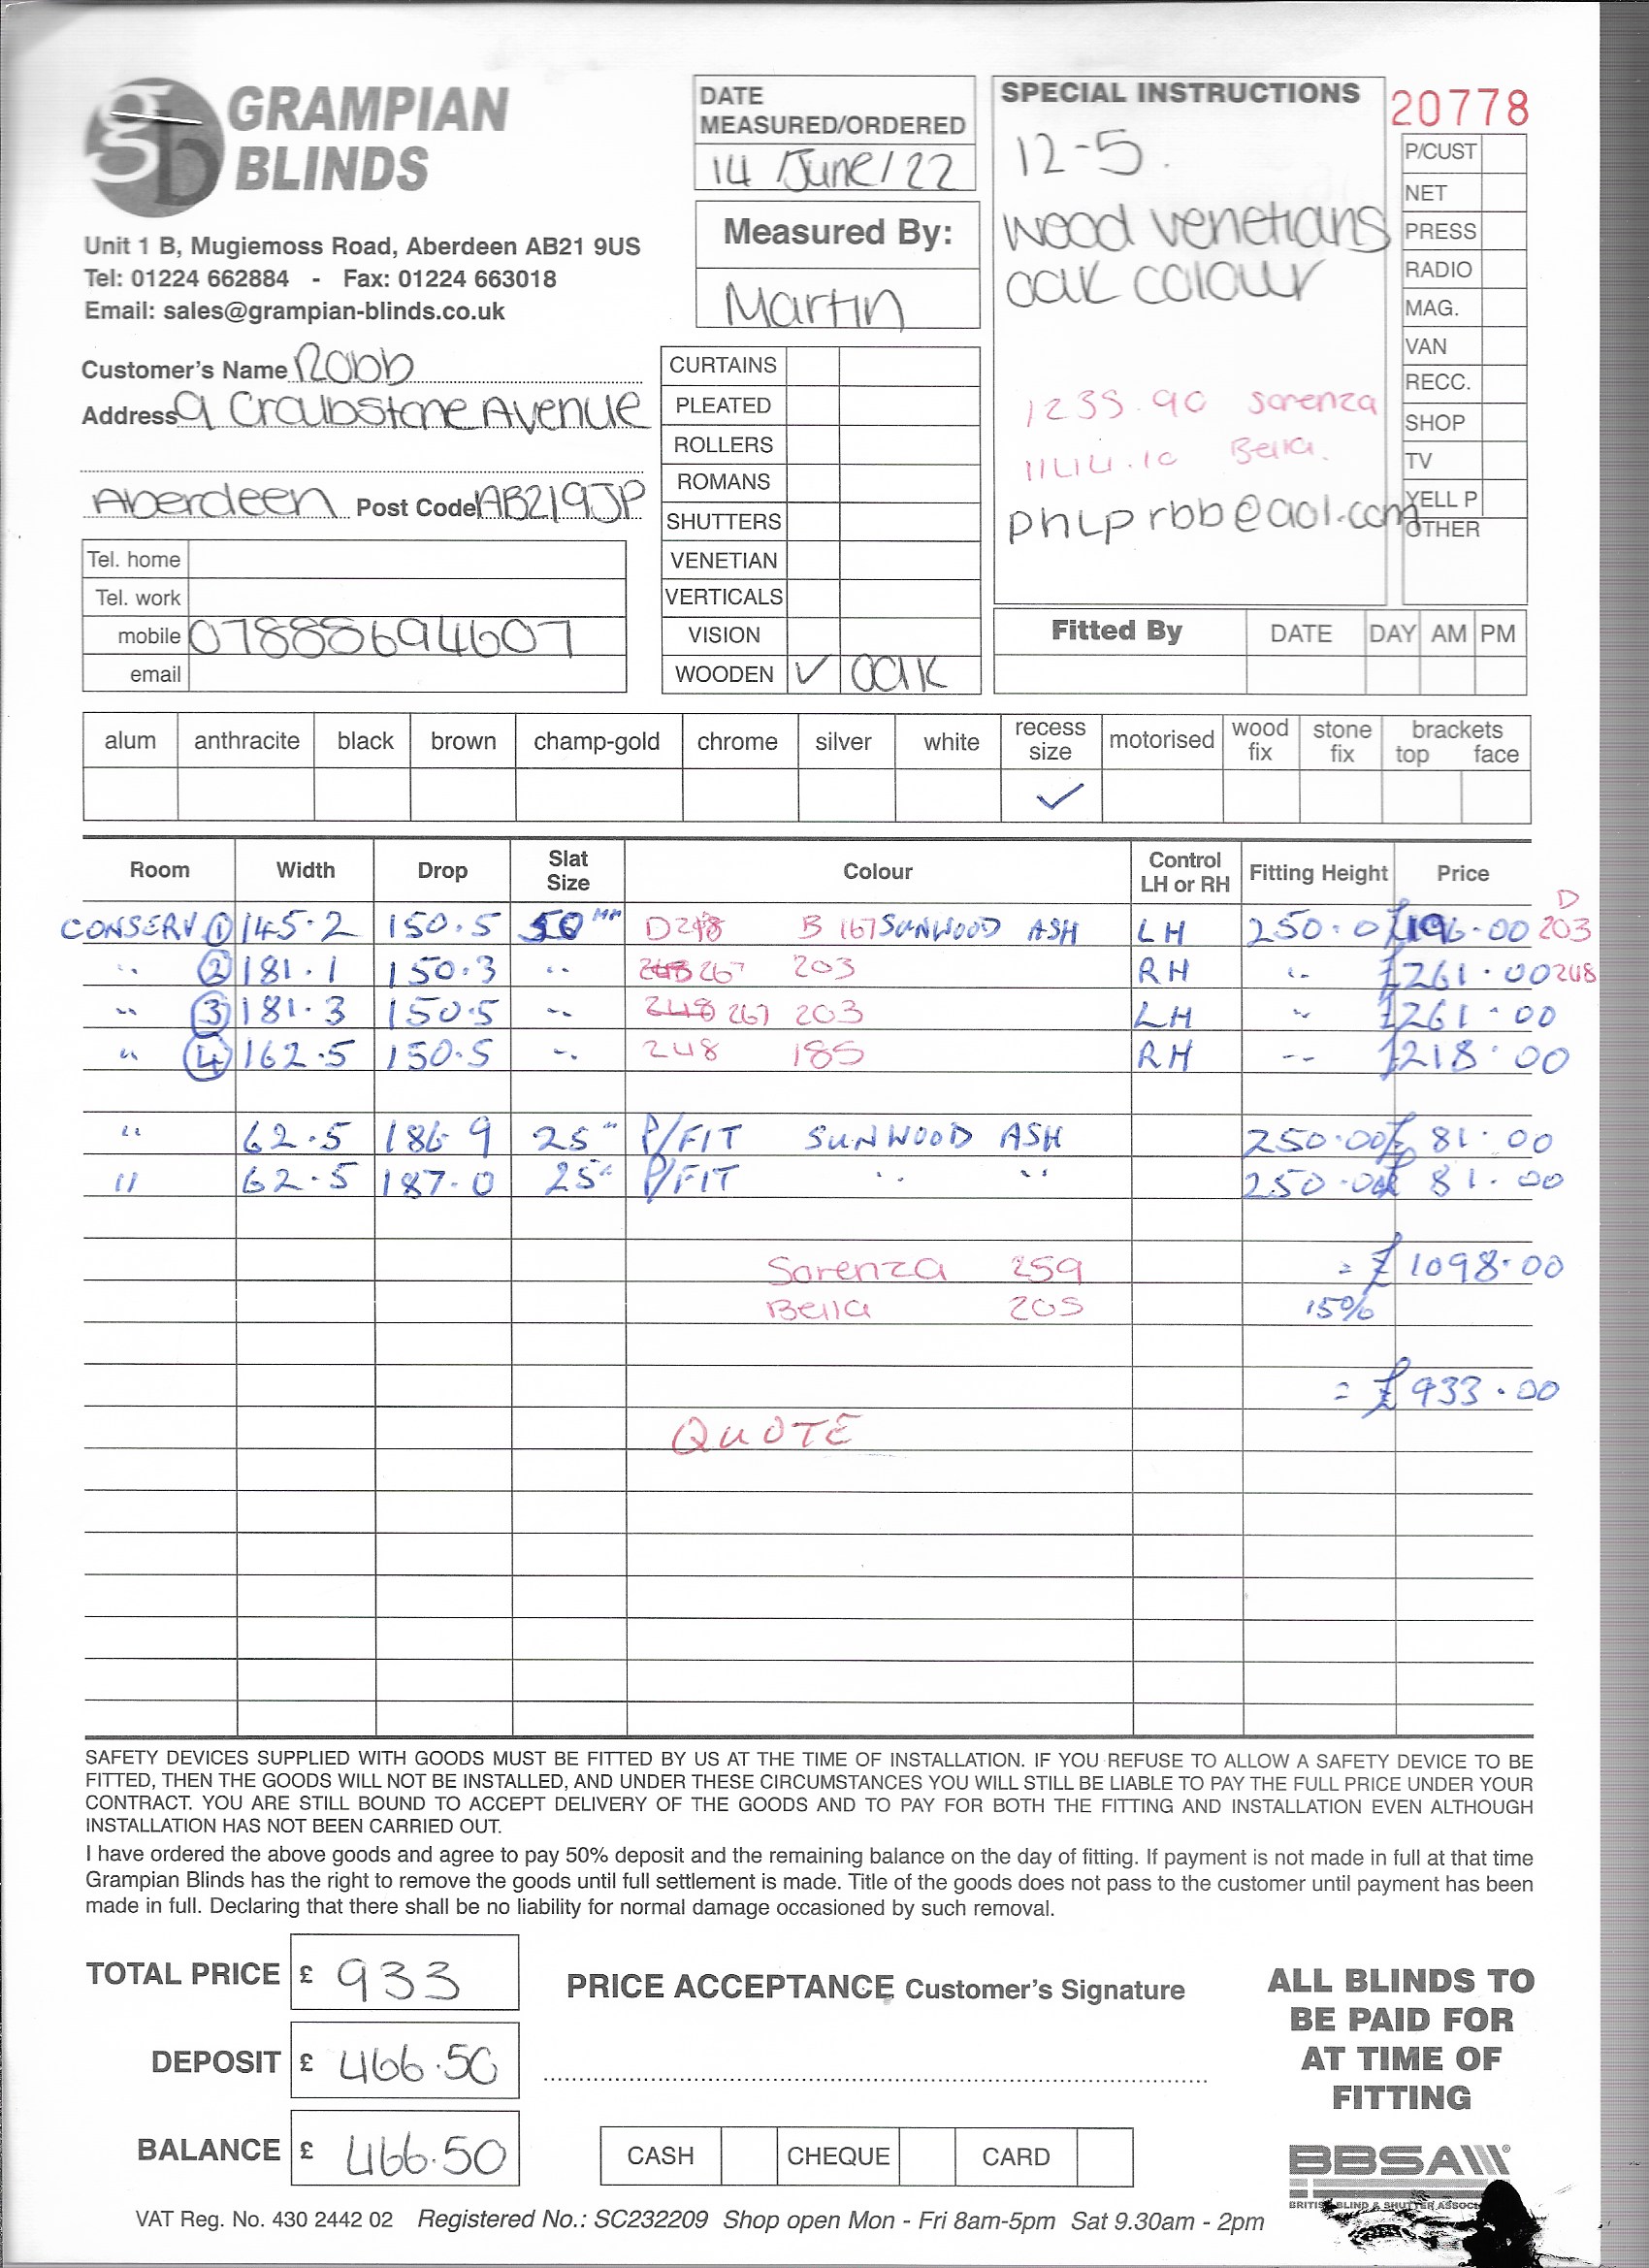 GRAMPIAN
BLINDS
Unit 1 B, Mugiemoss Road, Aberdeen AB21 9US
Tel: 01224 662884 - Fax: 01224 663018
Email: sales@grampian-blinds.co.uk
DATE
MEASURED/ORDERED
14 June/22
Measured By:
Martin
SPECIAL INSTRUCTIONS
12-5.
wood venetians
oak colour
1235.90 Sorenza
1144.10 Bella.
phlprbb@aol.com
20778
P/CUST
NET
PRESS
RADIO
MAG.
VAN
RECC.
SHOP
TV
YELL P
OTHER
Customer's Name Robb
Address 9 Craibstone Avenue
Aberdeen Post Code AB219JP
Tel. home
Tel. work
mobile 07888694607
email
CURTAINS
PLEATED
ROLLERS
ROMANS
SHUTTERS
VENETIAN
VERTICALS
VISION
WOODEN ✓ oak
Fitted By DATE DAY AM PM
alum anthracite black brown champ-gold chrome silver white recess size motorised wood fix stone fix brackets top face
✓
Room Width Drop Slat Size Colour Control LH or RH Fitting Height Price
D
CONSERV ① 145.2 150.5 50mm D248 B 167 SUNWOOD ASH LH 250.0 £196.00 203
" ② 181.1 150.3 " 267 203 RH " £261.00 248
" ③ 181.3 150.5 " 248 267 203 LH " £261.00
" ④ 162.5 150.5 " 248 185 RH " £218.00
" 62.5 186.9 25" P/FIT SUNWOOD ASH 250.00 £81.00
" 62.5 187.0 25" P/FIT " " 250.00 £81.00
Sorenza 259 = £1098.00
Bella 205 15%
= £933.00
QUOTE
SAFETY DEVICES SUPPLIED WITH GOODS MUST BE FITTED BY US AT THE TIME OF INSTALLATION. IF YOU REFUSE TO ALLOW A SAFETY DEVICE TO BE
FITTED, THEN THE GOODS WILL NOT BE INSTALLED, AND UNDER THESE CIRCUMSTANCES YOU WILL STILL BE LIABLE TO PAY THE FULL PRICE UNDER YOUR
CONTRACT. YOU ARE STILL BOUND TO ACCEPT DELIVERY OF THE GOODS AND TO PAY FOR BOTH THE FITTING AND INSTALLATION EVEN ALTHOUGH
INSTALLATION HAS NOT BEEN CARRIED OUT.
I have ordered the above goods and agree to pay 50% deposit and the remaining balance on the day of fitting. If payment is not made in full at that time
Grampian Blinds has the right to remove the goods until full settlement is made. Title of the goods does not pass to the customer until payment has been
made in full. Declaring that there shall be no liability for normal damage occasioned by such removal.
TOTAL PRICE £ 933
DEPOSIT £ 466.50
BALANCE £ 466.50
PRICE ACCEPTANCE Customer's Signature
CASH CHEQUE CARD
ALL BLINDS TO
BE PAID FOR
AT TIME OF
FITTING
BBSA
BLIND & SHUTTER
VAT Reg. No. 430 2442 02 Registered No.: SC232209 Shop open Mon - Fri 8am-5pm Sat 9.30am - 2pm